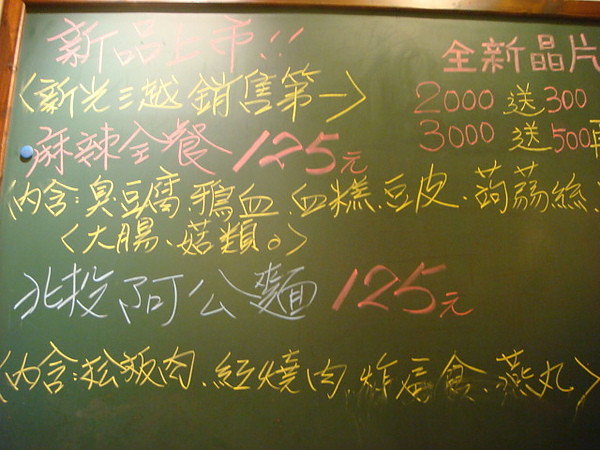 新品上市!!
〈新光三越銷售第一〉
麻辣全餐 125元
〈內含:臭豆腐、鴨血、血糕、豆皮、蒟蒻絲、
〈大腸、菇類。〉
北投阿公麵 125元
〈內含:松板肉、紅燒肉、炸扁食、燕丸〉
全新晶片
2000 送300
3000 送500再